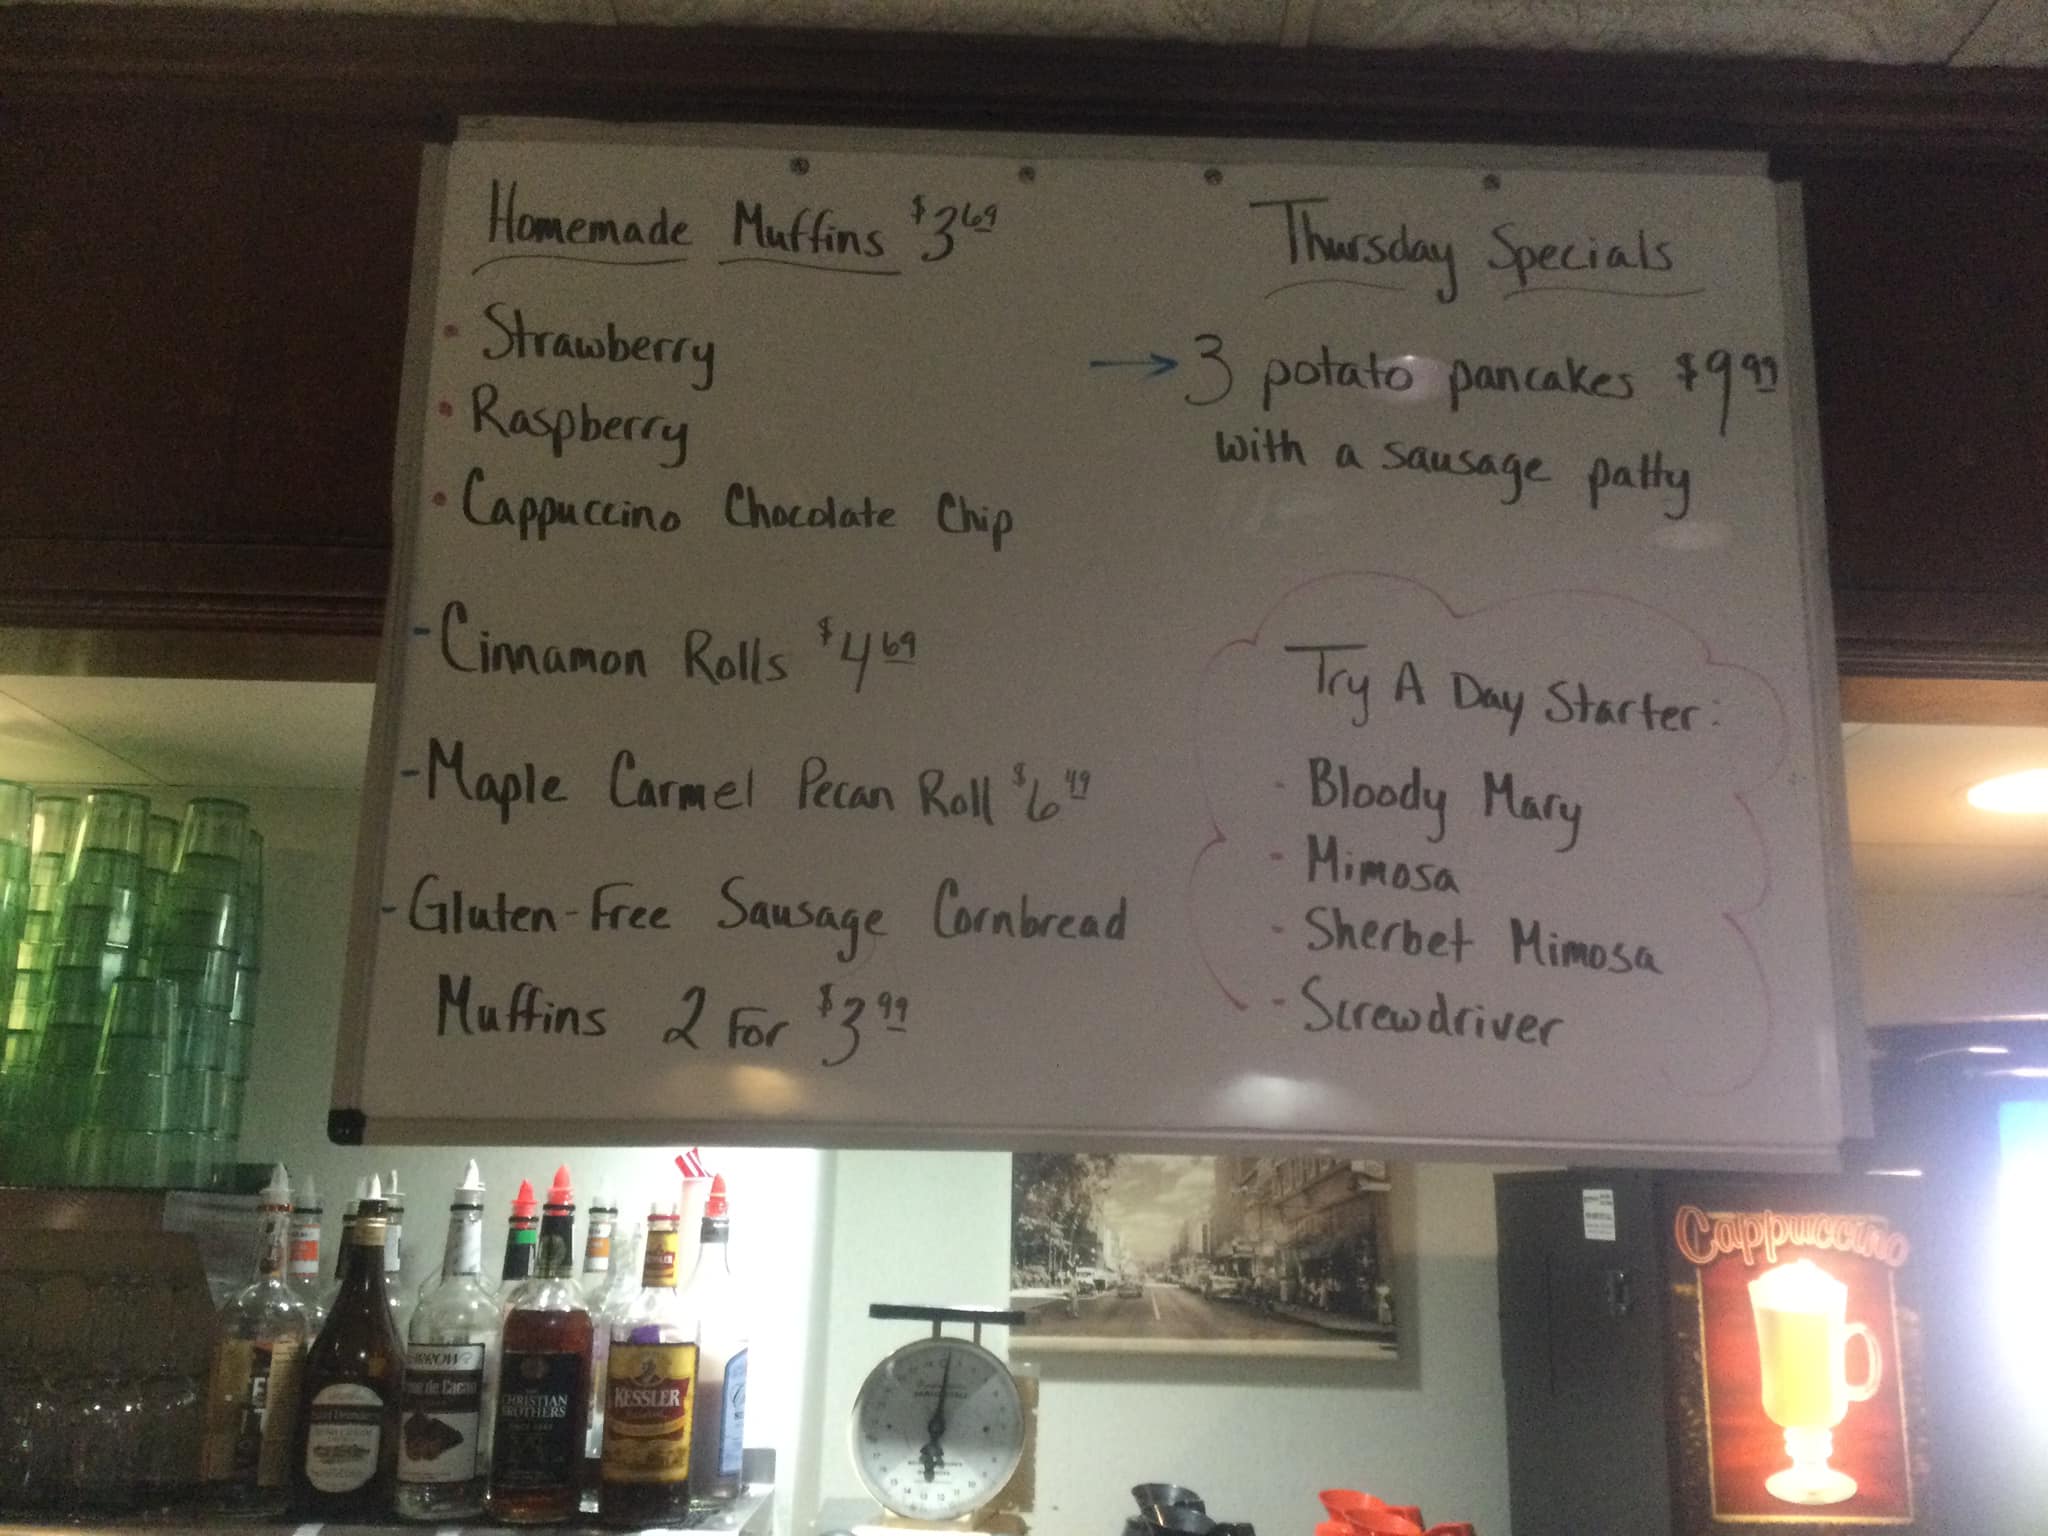 Homemade Muffins $3.69
• Strawberry
• Raspberry
• Cappuccino Chocolate Chip
- Cinnamon Rolls $4.69
- Maple Carmel Pecan Roll $6.49
- Gluten-Free Sausage Cornbread
Muffins 2 For $3.99
Thursday Specials
→ 3 potato pancakes $9.99
with a sausage patty
Try A Day Starter:
- Bloody Mary
- Mimosa
- Sherbet Mimosa
- Screwdriver
de Cacao
CHRISTIAN
BROTHERS
KESSLER
Cappuccino